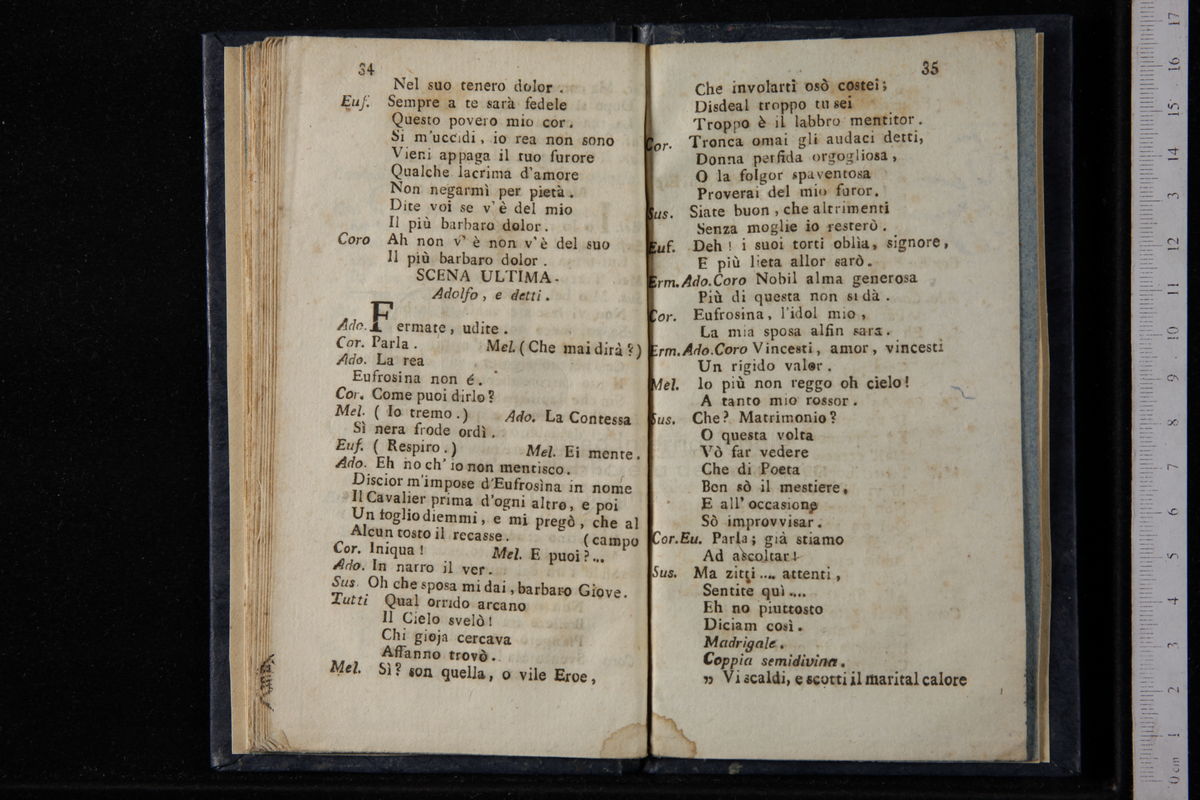 34
Nel suo tenero dolor.
Euf. Sempre a te sarà fedele
Questo povero mio cor.
Si m'uccidi, io rea non sono
Vieni appaga il tuo furore
Qualche lacrima d'amore
Non negarmi per pietà.
Dite voi se v'è del mio
Il più barbaro dolor.
Coro Ah non v'è non v'è del suo
Il più barbaro dolor.
SCENA ULTIMA.
Adolfo, e detti.
Ado. Fermate, udite.
Cor. Parla. Mel. (Che mai dirà?)
Ado. La rea
Eufrosina non é.
Cor. Come puoi dirlo?
Mel. (Io tremo.) Ado. La Contessa
Sì nera frode ordì.
Euf. (Respiro.) Mel. Ei mente.
Ado. Eh no ch'io non mentisco.
Discior m'impose d'Eufrosina in nome
Il Cavalier prima d'ogni altro, e poi
Un foglio diemmi, e mi pregò, che al
Alcun tosto il recasse. (campo
Cor. Iniqua! Mel. E puoi?...
Ado. In narro il ver.
Sus. Oh che sposa mi dai, barbaro Giove.
Tutti Qual orrido arcano
Il Cielo svelò!
Chi gioja cercava
Affanno trovò.
Mel. Sì? son quella, o vile Eroe,
35
Che involarti osò costei;
Disdeal troppo tu sei
Troppo è il labbro mentitor.
Cor. Tronca omai gli audaci detti,
Donna perfida orgogliosa,
O la folgor spaventosa
Proverai del mio furor.
Sus. Siate buon, che altrimenti
Senza moglie io resterò.
Euf. Deh! i suoi torti oblìa, signore,
E più lieta allor sarò.
Erm. Ado. Coro Nobil alma generosa
Più di questa non si dà.
Cor. Eufrosina, l'idol mio,
La mia sposa alfin sara.
Erm. Ado. Coro Vincesti, amor, vincesti
Un rigido valor.
Mel. Io più non reggo oh cielo!
A tanto mio rossor.
Sus. Che? Matrimonio?
O questa volta
Vò far vedere
Che di Poeta
Ben sò il mestiere,
E all'occasione
Sò improvvisar.
Cor. Eu. Parla; già stiamo
Ad ascoltar!
Sus. Ma zitti .... attenti,
Sentite quì....
Eh no piuttosto
Diciam così.
Madrigale.
Coppia semidivina.
„ Vi scaldi, e scotti il marital calore